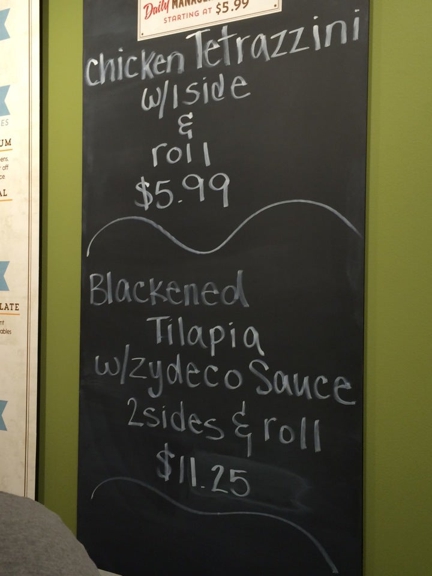 Daily
STARTING AT $5.99
Chicken Tetrazzini
w/1side
&
roll
$5.99
Blackened
Tilapia
w/zydeco Sauce
2sides & roll
$11.25